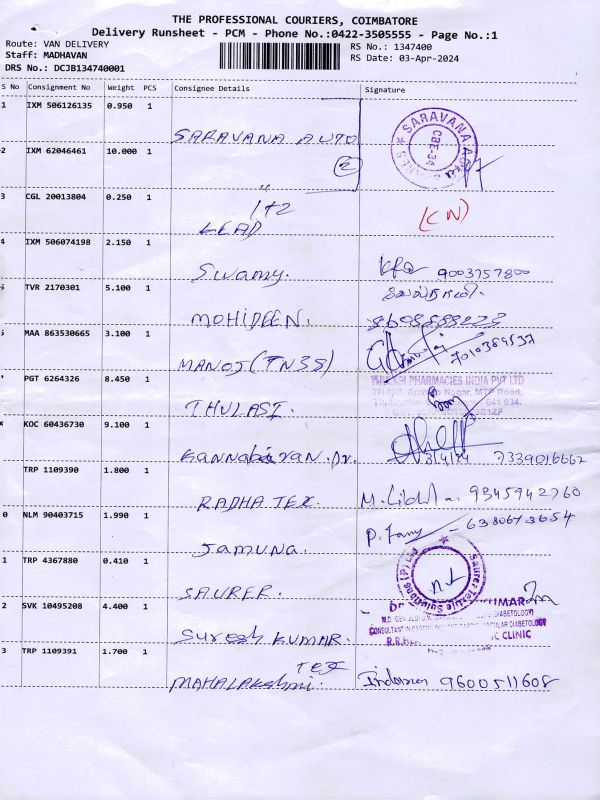 THE PROFESSIONAL COURIERS, COIMBATORE
Delivery Runsheet - PCM - Phone No.:0422-3505555 - Page No.:1
Route: VAN DELIVERY
RS No.: 1347400
Staff: MADHAVAN
RS Date: 03-Apr-2024
DRS No.: DCJB134740001
S No Consignment No Weight PCS Consignee Details Signature
1 IXM 506126135 0.950 1 SARAVANA AUTO
SARAVANA CBE-34
2 IXM 62046461 10.000 1 "
2
3 CGL 20013804 0.250 1 LEAD 1+2 (CN)
4 IXM 506074198 2.150 1 Swamy. 9003757800
TVR 2170301 5.100 1 MOHIDEEN.
MAA 863530665 3.100 1 MANOJ (TN38) 7010389537
PGT 6264326 8.450 1 THULASI.
PHARMACIES INDIA PVT LTD
KOC 60436730 9.100 1 Kannabiran.Dr. 3/4/24 7339016662
TRP 1109390 1.800 1 RADHA TEX. 9345942760
0 NLM 90403715 1.990 1 Jamuna. 6380673654
1 TRP 4367880 0.410 1 SAURER.
Saurer Textile Solutions (P) Ltd
2 SVK 10495208 4.400 1 Suresh KUMAR.
CLINIC
3 TRP 1109391 1.700 1 MAHALAKshmi. TEX 9600511608